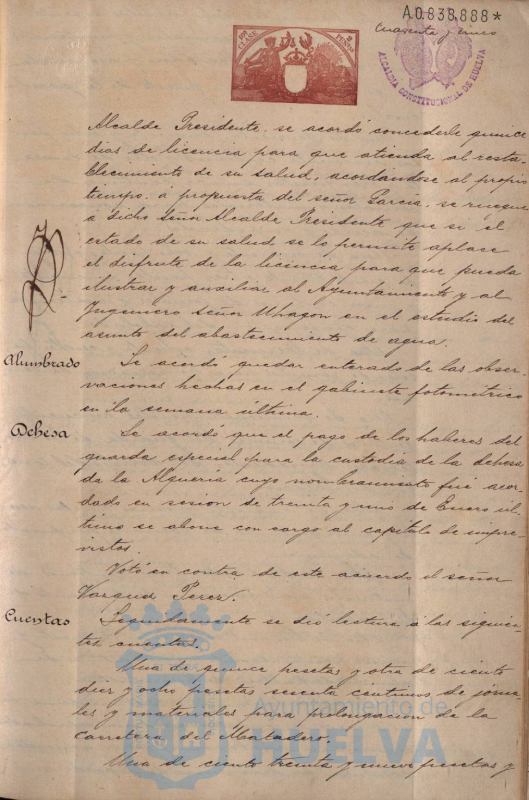 A.0.838,888*
Cuarenta y cinco
10ª CLASE
2 PESETAS
ALCALDIA CONSTITUCIONAL DE HUELVA
Alcalde Presidente, se acordó concederle quince
dias de licencia para que atienda al resta-
blecimiento de su salud, acordándose al propio
tiempo, á propuesta del señor Garcia, se ruegue
á dicho señor Alcalde Presidente que si el
estado de su salud se lo permite aplace
el disfrute de la licencia para que pueda
ilustrar y auxiliar al Ayuntamiento y al
Ingeniero señor Uhagon en el estudio del
asunto del abastecimiento de agua.
Alumbrado
Se acordó quedar enterado de las obser-
vaciones hechas en el gabinete fotométrico
en la semana última.
Dehesa
Se acordó que el pago de los haberes del
guarda especial para la custodia de la dehesa
de la Alquería cuyo nombramiento fué acor-
dado en sesion de treinta y uno de Enero úl-
timo se abone con cargo al capítulo de impre-
vistos.
Votó en contra de este acuerdo el señor
Vargas Perez.
Cuentas
Seguidamente se dió lectura á las siguien-
tes cuentas.
Una de quince pesetas y otra de ciento
diez y ocho pesetas sesenta centimos de jorna-
les y materiales para prolongacion de la
carretera del Matadero.
Una de ciento treinta y nueve pesetas y
Ayuntamiento de
HUELVA